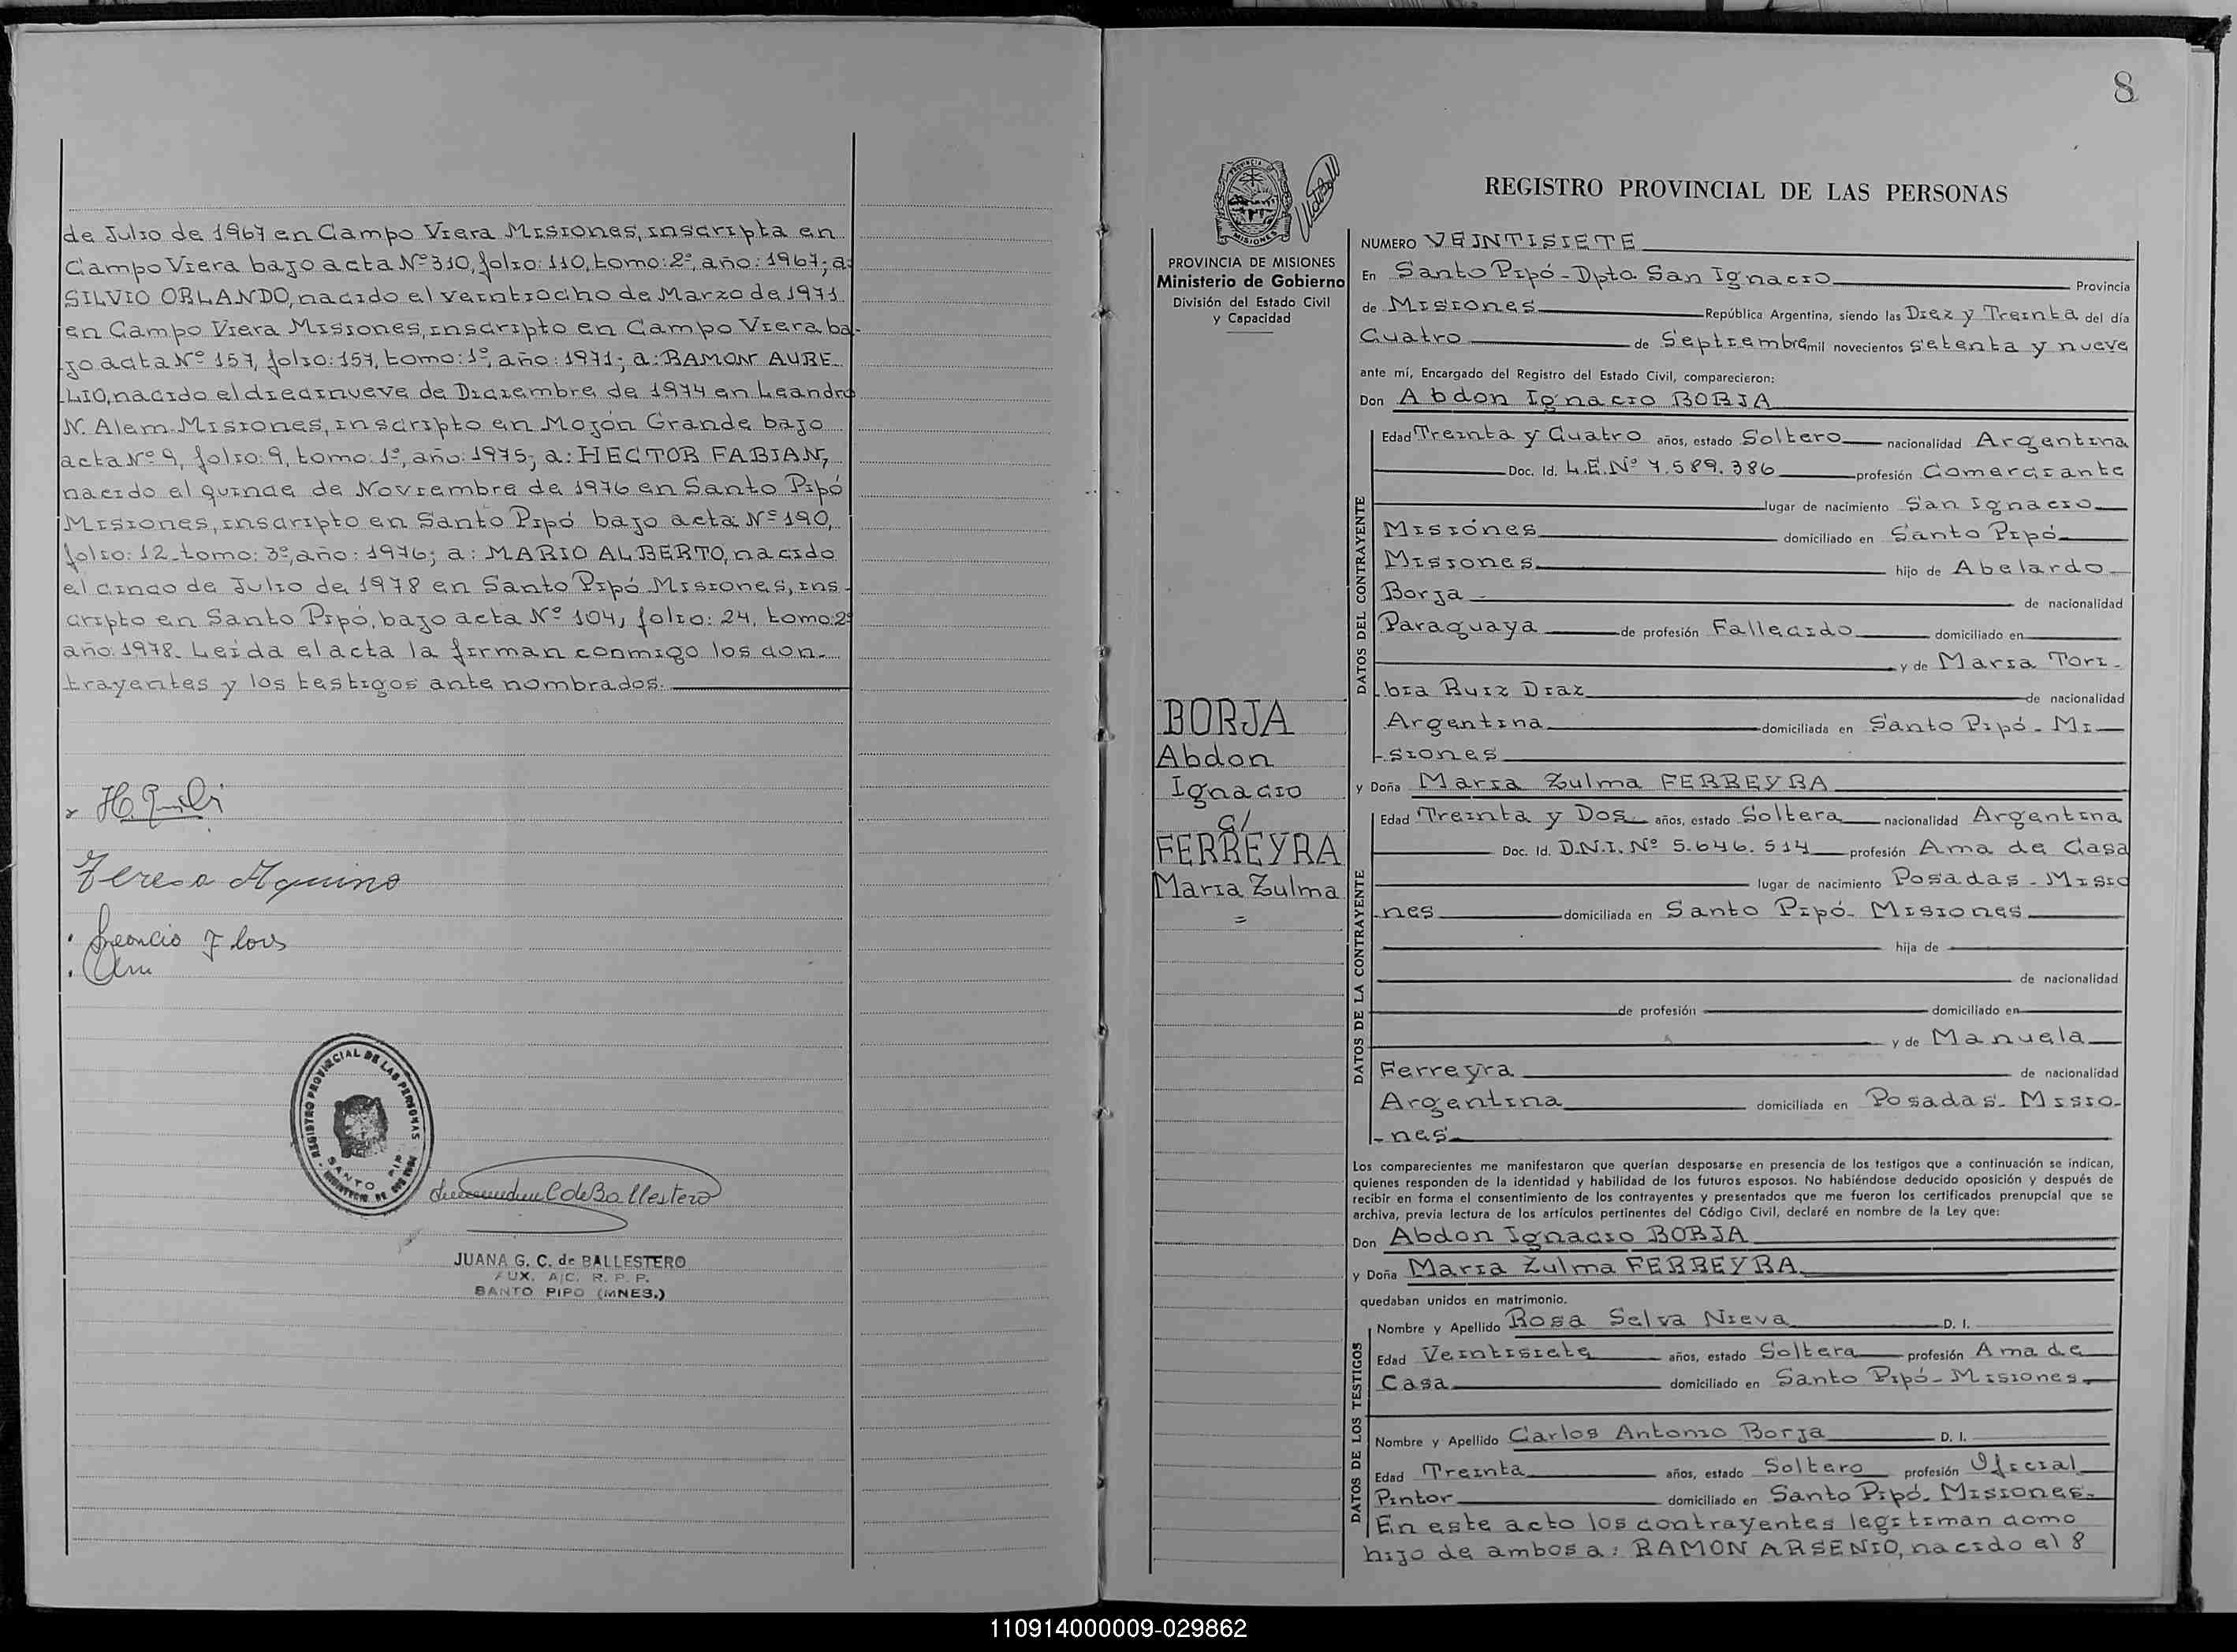 de Julio de 1967 en Campo Viera Misiones, inscripta en
Campo Viera bajo acta Nº 310, folio: 110, tomo: 2º, año: 1967; a:
SILVIO ORLANDO, nacido el veintiocho de Marzo de 1971
en Campo Viera Misiones, inscripto en Campo Viera ba-
jo acta Nº 157, folio: 157, tomo: 1º, año: 1971; a: RAMON AURE-
-LIO, nacido el diecinueve de Diciembre de 1974 en Leandro
N. Alem-Misiones, inscripto en Mojón Grande bajo
acta Nº 9, folio: 9, tomo: 1º, año: 1975; a: HECTOR FABIAN,
nacido el quince de Noviembre de 1976 en Santo Pipó
Misiones, inscripto en Santo Pipó bajo acta Nº 190,
folio: 12 tomo: 3º, año: 1976; a: MARIO ALBERTO, nacido
el cinco de Julio de 1978 en Santo Pipó Misiones, ins-
cripto en Santo Pipó, bajo acta Nº 104, folio: 24, tomo: 2º
año: 1978. Leida el acta la firman conmigo los con-
trayentes y los testigos ante nombrados.
Teresa Aquino
Leoncio Flores
REGISTRO PROVINCIAL DE LAS PERSONAS
SANTO PIPO
C de Ballestero
JUANA G. C. de BALLESTERO
AUX. A/C. R. P. P.
SANTO PIPO (MNES.)
8
PROVINCIA DE MISIONES
PROVINCIA DE MISIONES
Ministerio de Gobierno
División del Estado Civil
y Capacidad
BORJA
Abdon
Ignacio
c/
FERREYRA
Maria Zulma
=
REGISTRO PROVINCIAL DE LAS PERSONAS
NUMERO VEINTISIETE
En Santo Pipó-Dpto. San Ignacio Provincia
de Misiones República Argentina, siendo las Diez y Treinta del día
Cuatro de Septiembre mil novecientos setenta y nueve
ante mí, Encargado del Registro del Estado Civil, comparecieron:
Don Abdon Ignacio BORJA
DATOS DEL CONTRAYENTE
Edad Treinta y Cuatro años, estado Soltero nacionalidad Argentina
Doc. Id. L.E. Nº 7.589.386 profesión Comerciante
lugar de nacimiento San Ignacio
Misiones domiciliado en Santo Pipó
Misiones hijo de Abelardo
Borja de nacionalidad
Paraguaya de profesión Fallecido domiciliado en
y de Maria Tori-
-bia Ruiz Diaz de nacionalidad
Argentina domiciliada en Santo Pipó-Mi
-siones
y Doña Maria Zulma FERREYRA
DATOS DE LA CONTRAYENTE
Edad Treinta y Dos años, estado Soltera nacionalidad Argentina
Doc. Id. D.N.I. Nº 5.646.514 profesión Ama de Casa
lugar de nacimiento Posadas-Misio
-nes domiciliada en Santo Pipó-Misiones
hija de
de nacionalidad
de profesión domiciliado en
y de Manuela
Ferreyra de nacionalidad
Argentina domiciliada en Posadas-Misio-
-nes
Los comparecientes me manifestaron que querían desposarse en presencia de los testigos que a continuación se indican,
quienes responden de la identidad y habilidad de los futuros esposos. No habiéndose deducido oposición y después de
recibir en forma el consentimiento de los contrayentes y presentados que me fueron los certificados prenupcial que se
archiva, previa lectura de los artículos pertinentes del Código Civil, declaré en nombre de la Ley que:
Don Abdon Ignacio BORJA
y Doña Maria Zulma FERREYRA
quedaban unidos en matrimonio.
DATOS DE LOS TESTIGOS
Nombre y Apellido Rosa Selva Nieva D. I.
Edad Veintisiete años, estado Soltera profesión Ama de
Casa domiciliado en Santo Pipó-Misiones
Nombre y Apellido Carlos Antonio Borja D. I.
Edad Treinta años, estado Soltero profesión Oficial
Pintor domiciliado en Santo Pipó-Misiones
En este acto los contrayentes legitiman como
hijo de ambos a: RAMON ARSENIO, nacido el 8
110914000009-029862